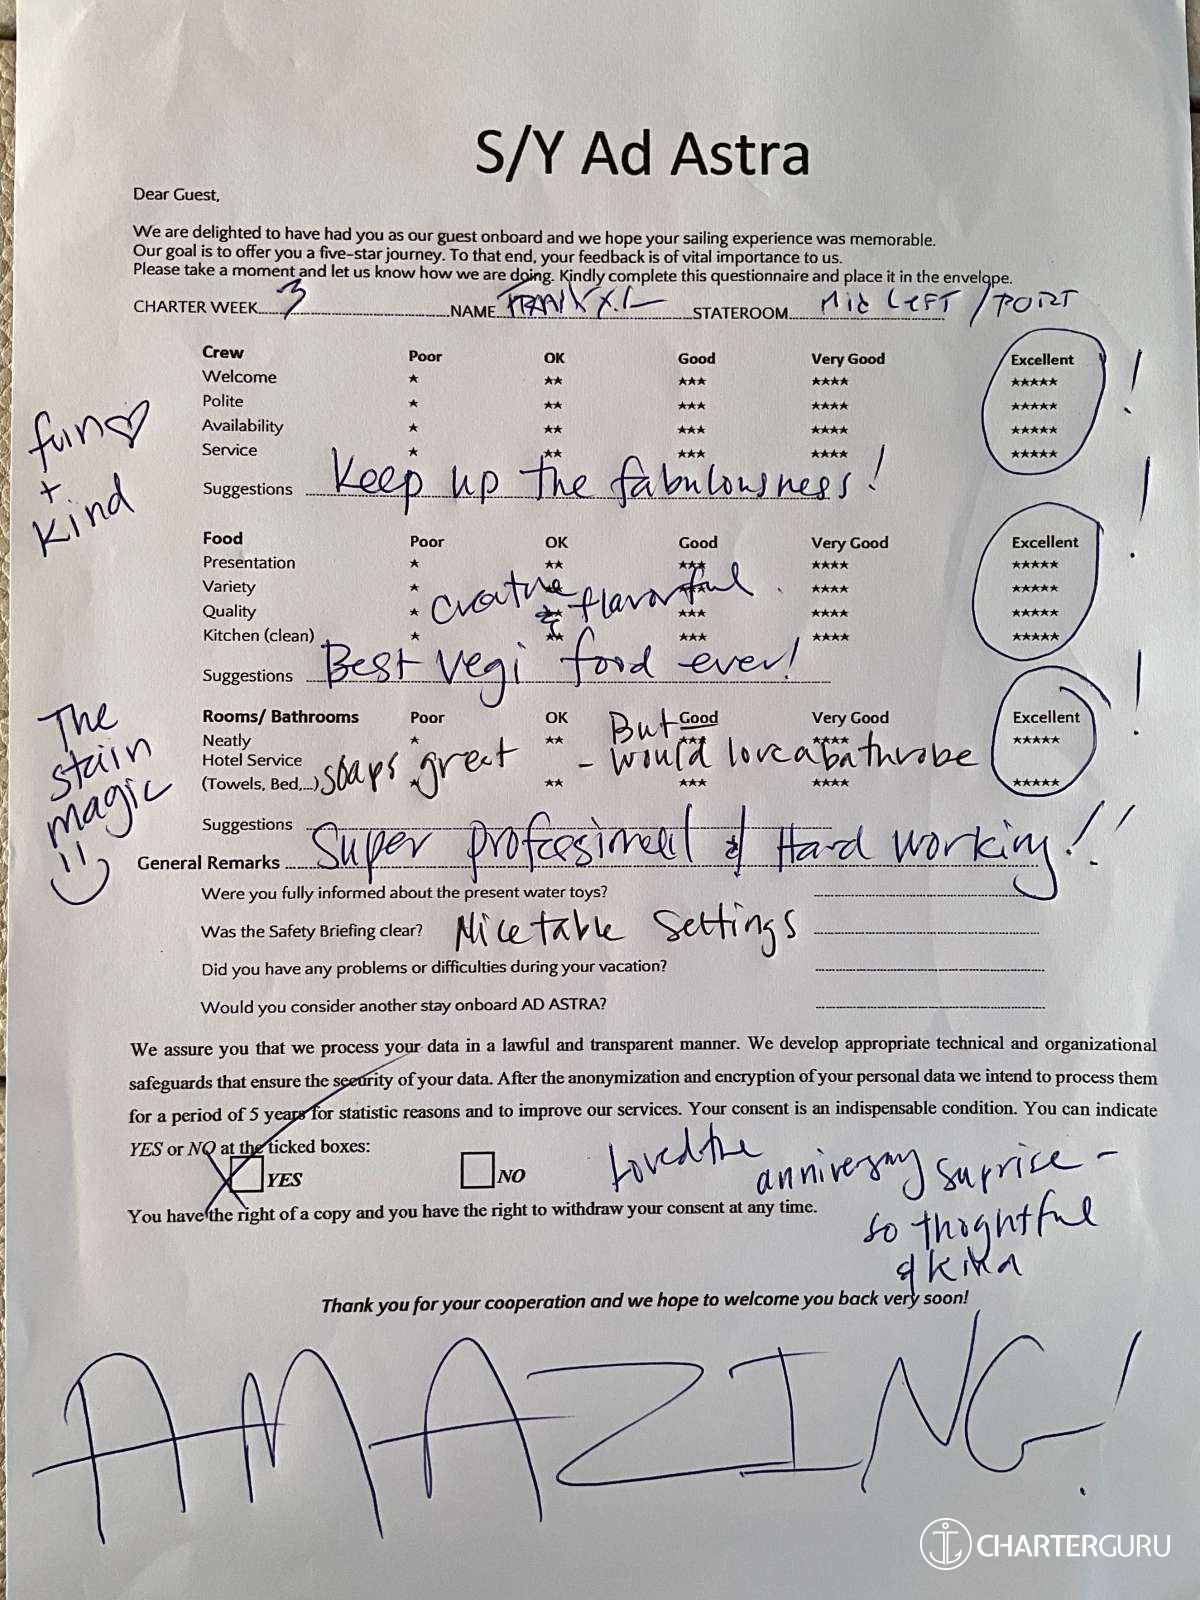 S/Y Ad Astra
Dear Guest,
We are delighted to have had you as our guest onboard and we hope your sailing experience was memorable.
Our goal is to offer you a five-star journey. To that end, your feedback is of vital importance to us.
Please take a moment and let us know how we are doing. Kindly complete this questionnaire and place it in the envelope.
CHARTER WEEK 3 NAME STATEROOM Mid LEFT / PORT
Crew Poor OK Good Very Good Excellent
Welcome ★ ★★ ★★★ ★★★★ ★★★★★ !
Polite ★ ★★ ★★★ ★★★★ ★★★★★
Availability ★ ★★ ★★★ ★★★★ ★★★★★
Service ★ ★★ ★★★ ★★★★ ★★★★★
fun ♡
+
Kind
Suggestions Keep up the fabulousness!
Food Poor OK Good Very Good Excellent !
Presentation ★ ★★ ★★★ ★★★★ ★★★★★
Variety ★ ★★ ★★★ ★★★★ ★★★★★
creative & flavorful
Quality ★ ★★ ★★★ ★★★★ ★★★★★
Kitchen (clean) ★ ★★ ★★★ ★★★★ ★★★★★
Suggestions Best vegi food ever!
Rooms/ Bathrooms Poor OK Good Very Good Excellent !
Neatly ★ ★★ ★★★ ★★★★ ★★★★★
Hotel Service
(Towels, Bed,...) ★ ★★ ★★★ ★★★★ ★★★★★
soaps great - But would love a bathrobe
The
stain
magic
Suggestions
General Remarks Super professional & Hard working!!
Were you fully informed about the present water toys?
Was the Safety Briefing clear? Nice table settings
Did you have any problems or difficulties during your vacation?
Would you consider another stay onboard AD ASTRA?
We assure you that we process your data in a lawful and transparent manner. We develop appropriate technical and organizational
safeguards that ensure the security of your data. After the anonymization and encryption of your personal data we intend to process them
for a period of 5 years for statistic reasons and to improve our services. Your consent is an indispensable condition. You can indicate
YES or NO at the ticked boxes:
YES NO
You have the right of a copy and you have the right to withdraw your consent at any time.
Loved the anniversay suprise -
so thoghtful
& kind
Thank you for your cooperation and we hope to welcome you back very soon!
AMAZING!
CHARTERGURU